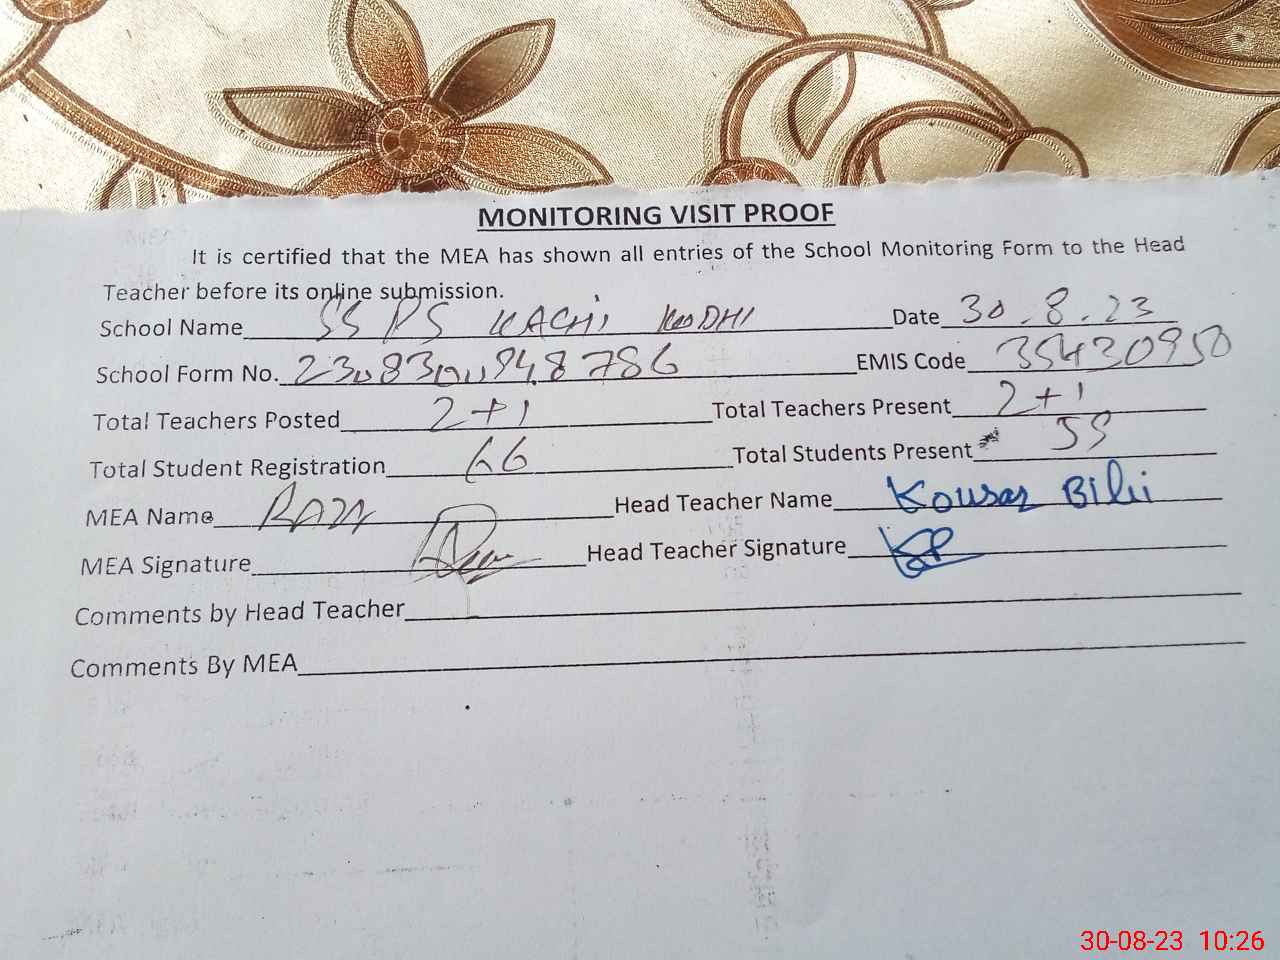 MONITORING VISIT PROOF
It is certified that the MEA has shown all entries of the School Monitoring Form to the Head
Teacher before its online submission.
School Name SS PS KACHI KODHI Date 30.8.23
School Form No. EMIS Code 35430950
Total Teachers Posted 2+1 Total Teachers Present 2+1
Total Student Registration 66 Total Students Present
MEA Name RAZA Head Teacher Name Kousar
MEA Signature Head Teacher Signature
Comments by Head Teacher
Comments By MEA
30-08-23 10:26